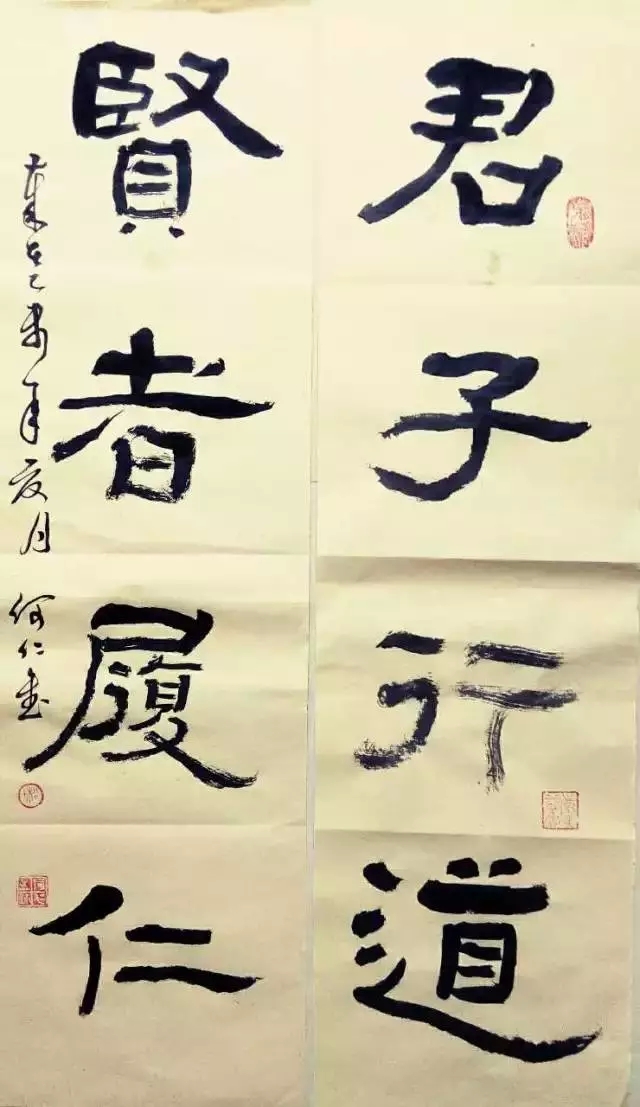 君子行道
賢者履仁
在乙未年夏月 何仁書